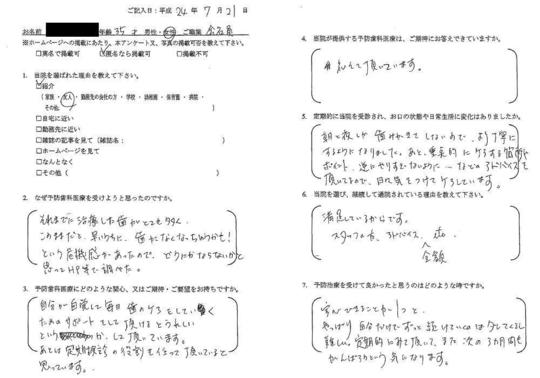 ご記入日:平成 24 年 7 月 21 日
お名前 年齢 35 才 男性・女性 ご職業 会社員
※ホームページへの掲載にあたり、本アンケート又、写真の掲載可否を教えて下さい。
□実名で掲載可 ☑匿名なら掲載可 □掲載不可
1. 当院を選ばれた理由を教えて下さい。
☑紹介
(家族・友人・勤務先の会社の方・学校・幼稚園・保育園・病院・
その他 )
□自宅に近い
□勤務先に近い
□雑誌の記事を見て(雑誌名: )
□ホームページを見て
□なんとなく
□その他( )
2. なぜ予防歯科医療を受けようと思ったのですか。
それまでに治療した歯がとても多く、
このままだと、早いうちに、歯がなくなっちゃうかも!
という危機感があったので、どうにかならないかと
思ってHP等で調べた。
3. 予防歯科医療にどのような関心、又はご期待・ご要望をお持ちですか。
自分が自覚して毎日歯のケアをしていく
ためのサポートをして頂けるとうれしい
という して頂いています。
あとは定期検診の役割を担って頂いていると
思っています。
4. 当院が提供する予防歯科医療は、ご期待にお答えできていますか。
答えて頂いています。
5. 定期的に当院を受診され、お口の状態や日常生活に変化はありましたか。
朝と夜しか歯みがきしないので、より丁寧に
するようになりました。あと、重点的にケアする箇所や
ポイント、逆にやりすぎないように…などのアドバイスを
頂いてるので、日に気をつけてケアしています。
6. 当院を選び、継続して通院されている理由を教えて下さい。
満足しているからです。
スタッフの方、アドバイス、
金額
7. 予防治療を受けて良かったと思うのはどのような時ですか。
安心できることが1つと、
やっぱり自分だけでずっと続けていくのは少してくるし
難しい。定期的にみて頂いて、また次の3カ月間も
がんばろうという気になります。